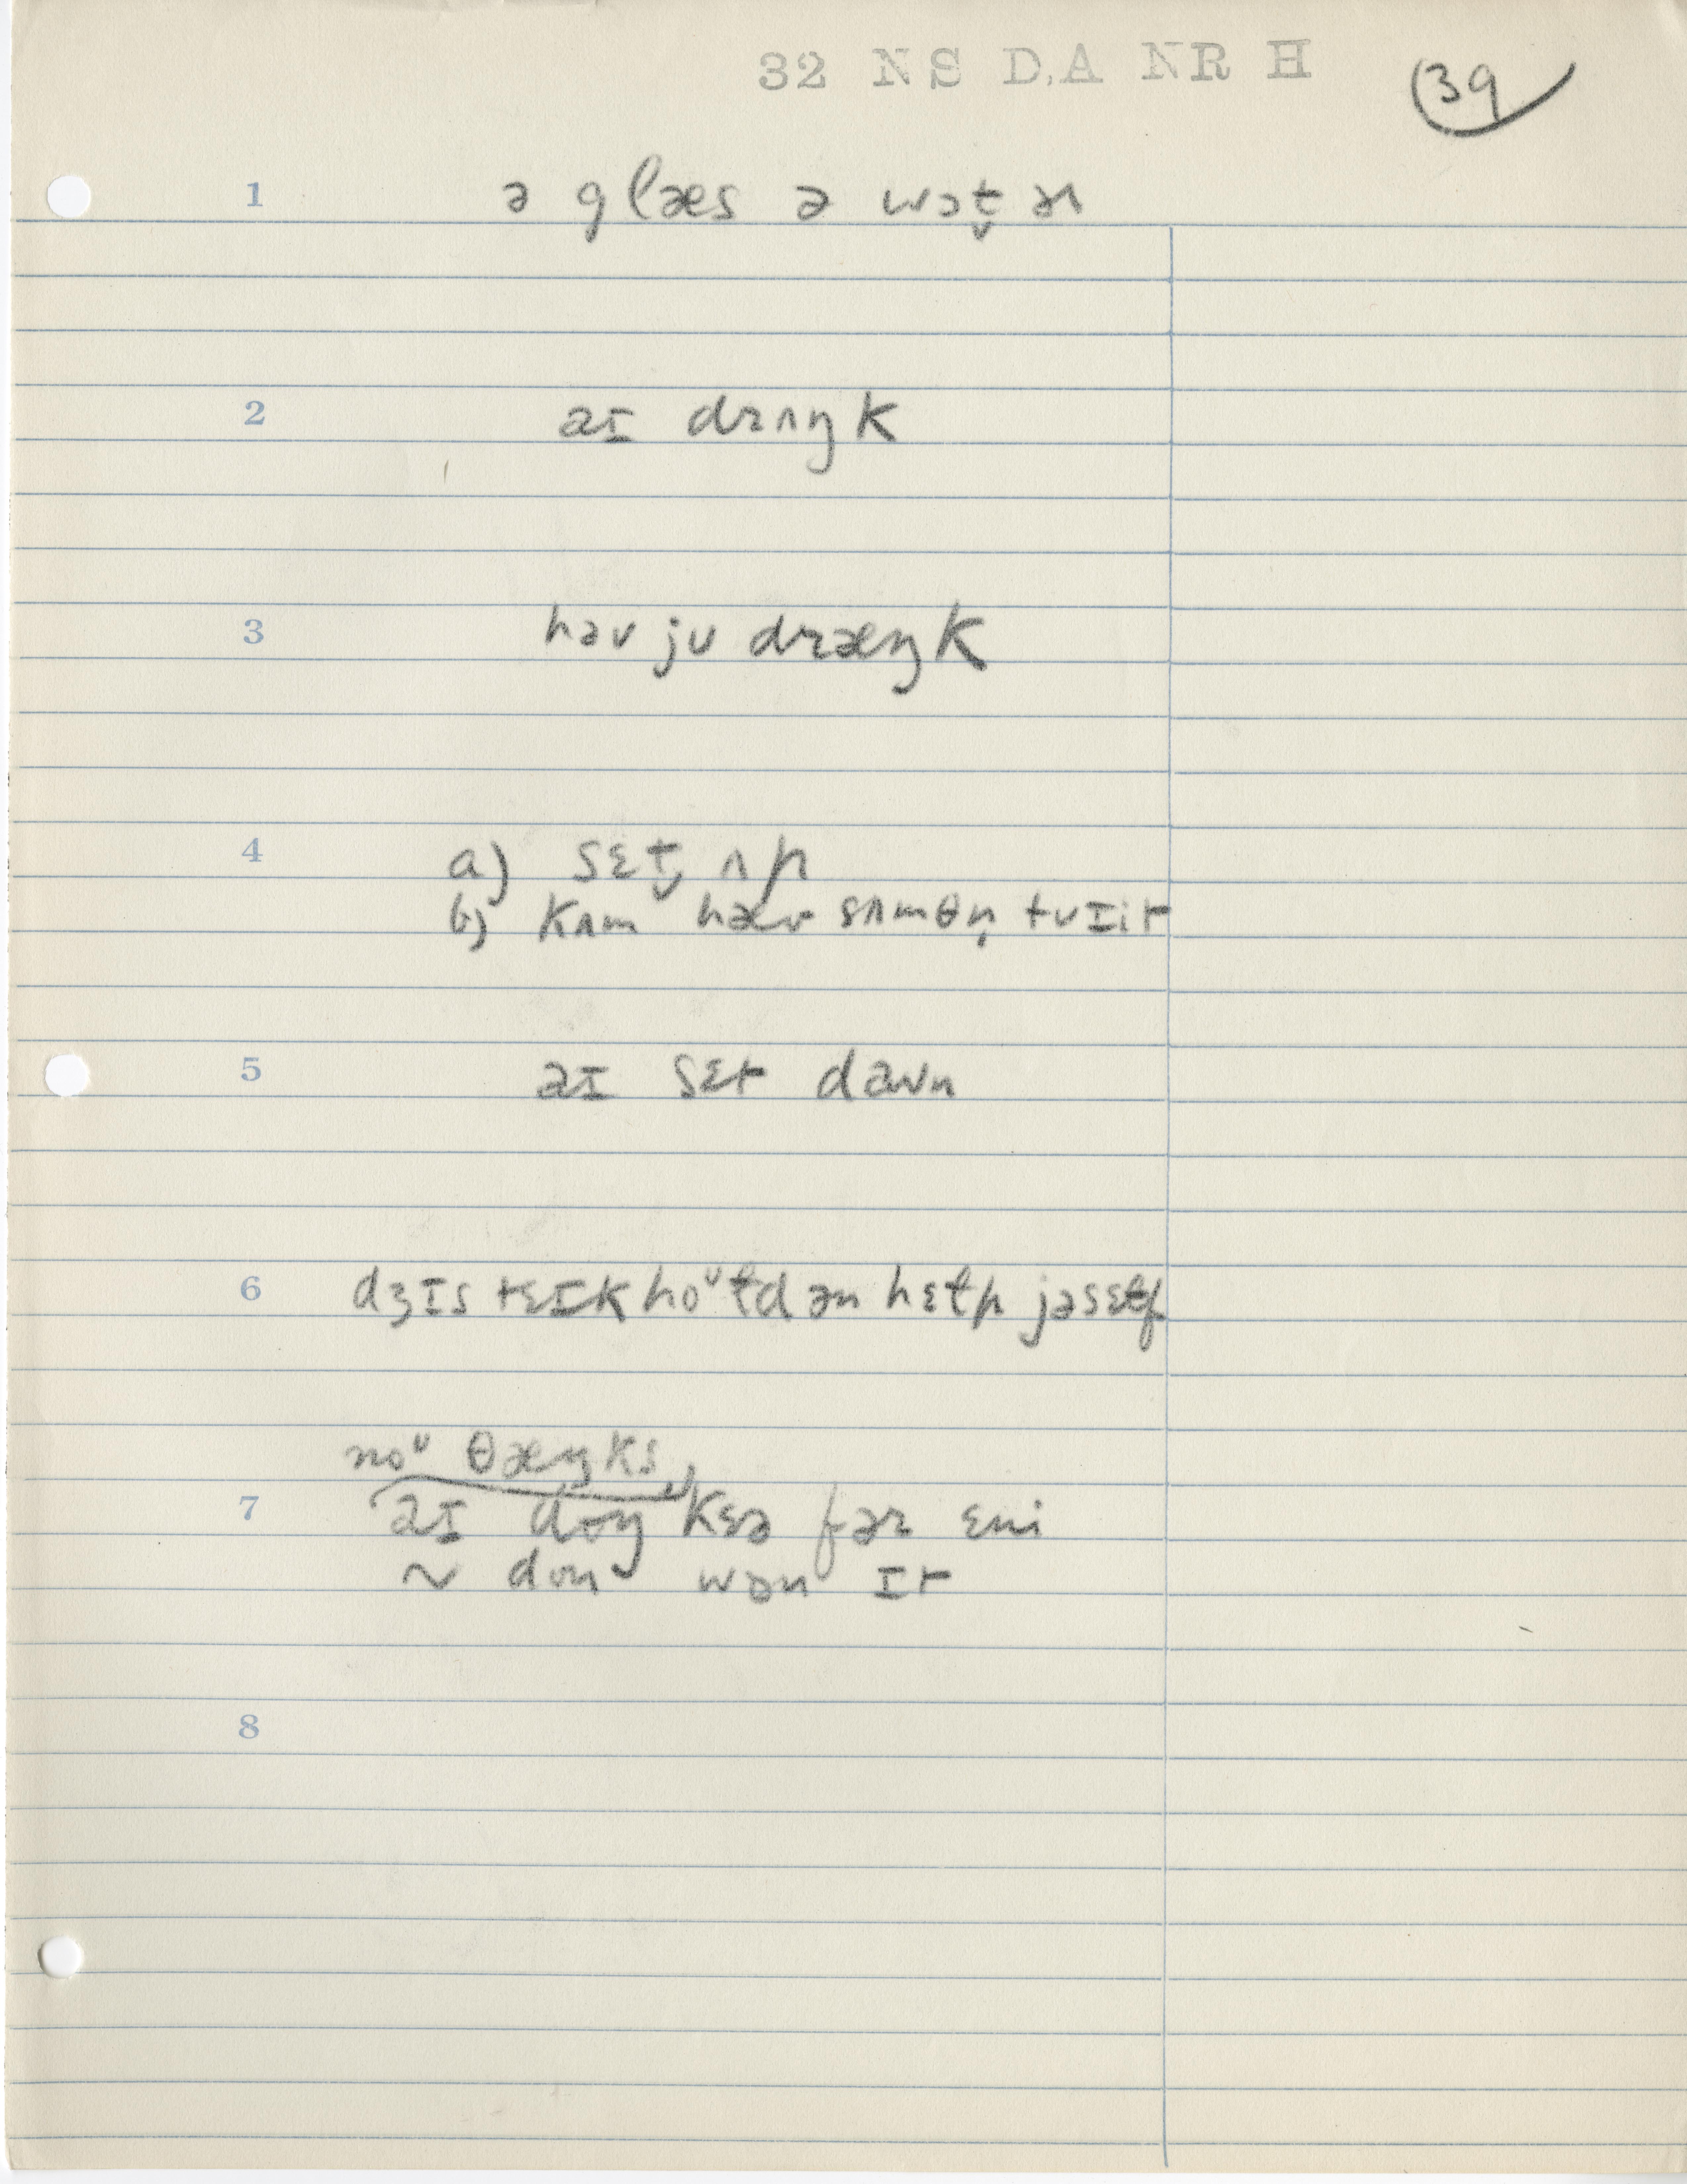 32 NS D.A NR H
39
1 ə glæs ə wɔt̬ ɚ
2 aɪ drʌŋk
3 həv ju dræŋk
4 a) sɛt̬ ʌp
b) kʌm hæv sʌmθn̩ tu ɪit
5 aɪ sɛt daʊn
6 dʒɪs tɛɪk hoᶷɫd ən hɛɫp jəsɛɫf
noᶷ θæŋks
7 aɪ doŋ kɛə fər ɛni
~ don wən ɪt
8